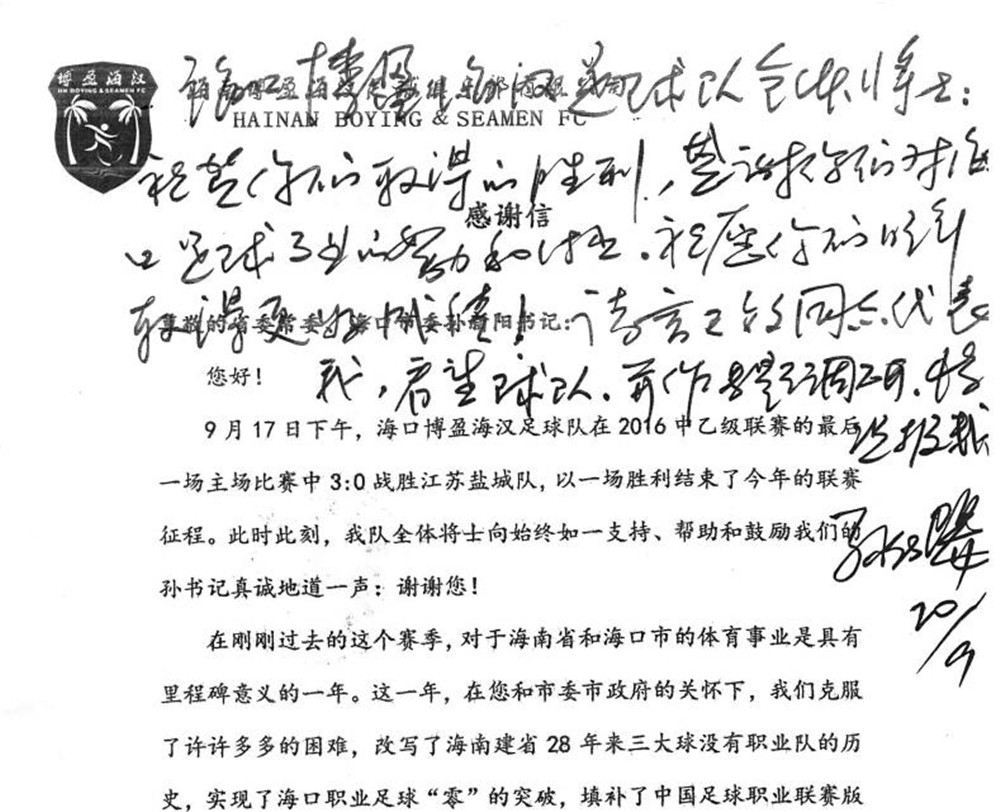 博盈海汉
HN BOYING & SEAMEN FC
海口博盈海汉足球队全体将士：
HAINAN BOYING & SEAMEN FC
祝贺你们取得的胜利，感谢你们对海
感谢信
口足球事业的努力和付出。祝愿你们明年
取得更好成绩！请
同志代表
尊敬的省委常委、海口市委孙新阳书记：
我，看望球队。并作专题调研，
您好！
报我
9月17日下午，海口博盈海汉足球队在2016中乙级联赛的最后
一场主场比赛中3:0战胜江苏盐城队，以一场胜利结束了今年的联赛
征程。此时此刻，我队全体将士向始终如一支持、帮助和鼓励我们的
孙书记真诚地道一声：谢谢您！
20/9
在刚刚过去的这个赛季，对于海南省和海口市的体育事业是具有
里程碑意义的一年。这一年，在您和市委市政府的关怀下，我们克服
了许许多多的困难，改写了海南建省28年来三大球没有职业队的历
史，实现了海口职业足球“零”的突破，填补了中国足球职业联赛版